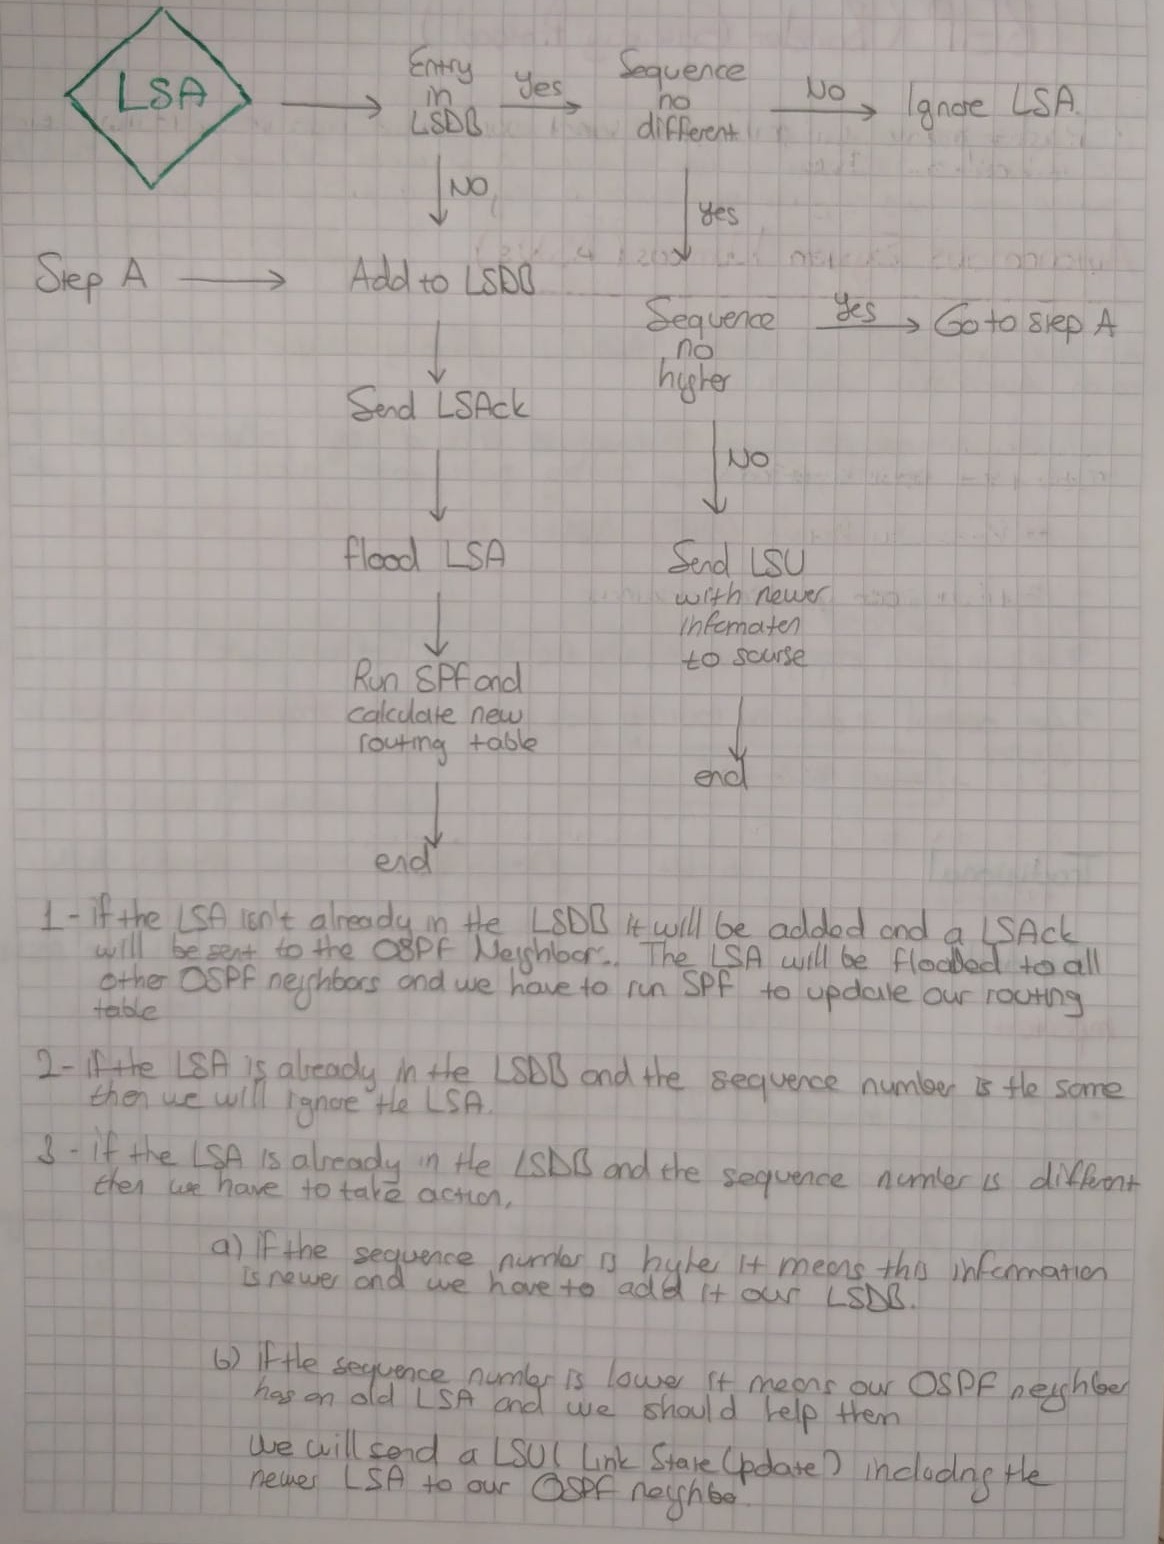 LSA
Entry
in
LSDB
Yes
Sequence
no
different
No
Ignore LSA.
NO
yes
Step A
Add to LSDB
Sequence
no
higher
Yes
Go to step A
Send LSAck
No
flood LSA
Send LSU
with newer
information
to sourse
Run SPF and
calculate new
routing table
end
end
1 - if the LSA isn't already in the LSDB it will be added and a LSAck
will be sent to the OSPF Neighbor.. The LSA will be flooded to all
other OSPF neighbors and we have to run SPF to update our routing
table
2- if the LSA is already in the LSDB and the sequence number is the same
then we will ignore the LSA.
3 - if the LSA is already in the LSDB and the sequence number is different
then we have to take action.
a) if the sequence number is hyher it means this information
is newer and we have to add it our LSDB.
b) if the sequence number is lower it means our OSPF neighber
has an old LSA and we should help them
We will send a LSU( Link State Update) including the
newer LSA to our OSPF neighbo.